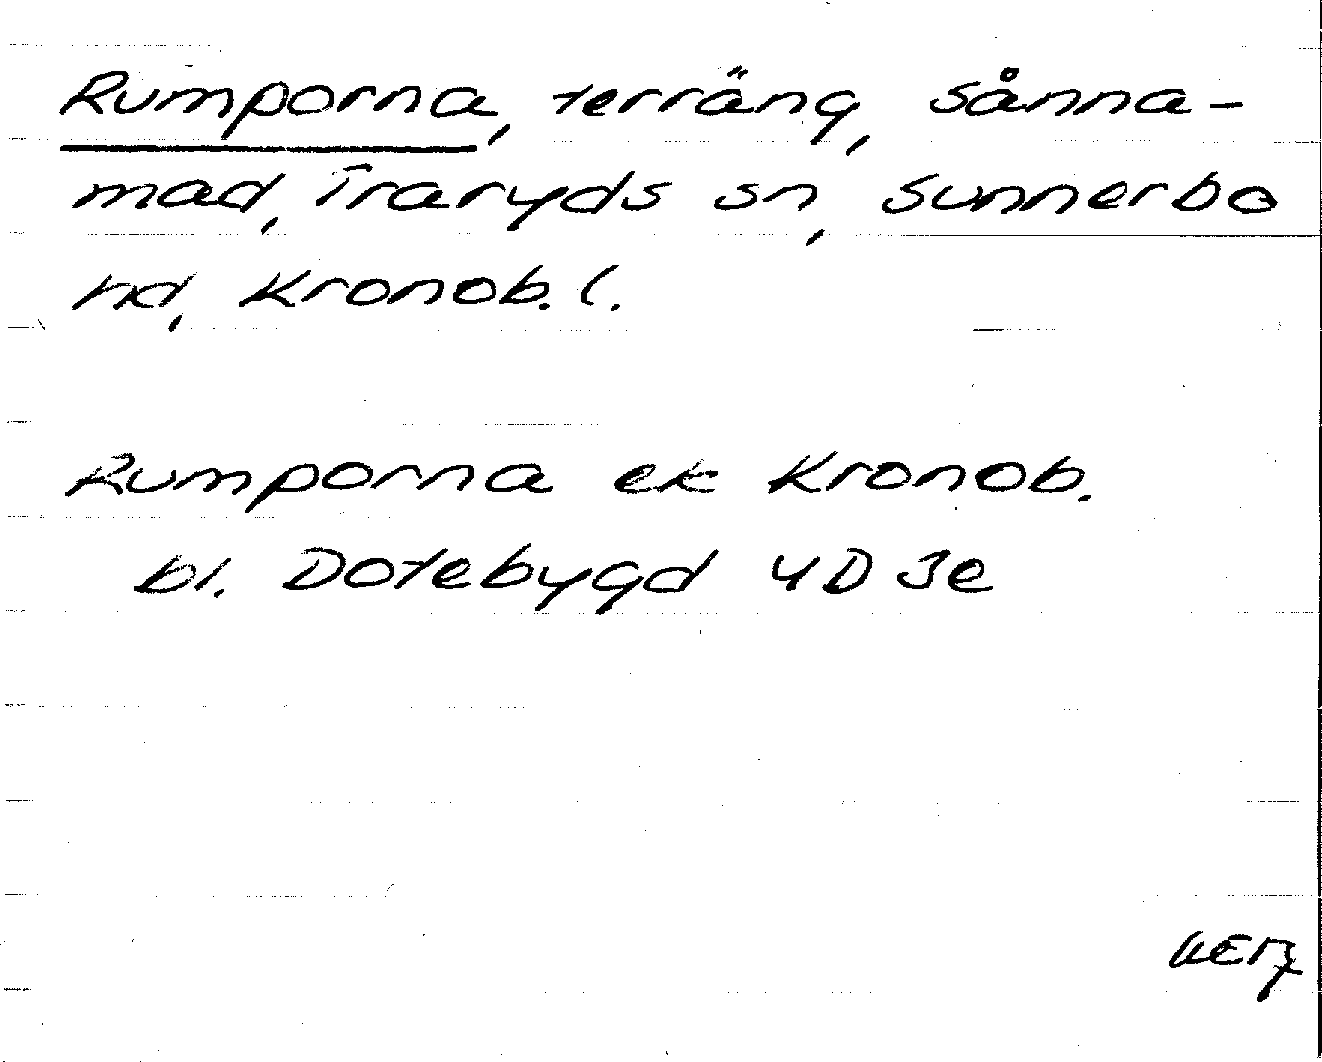 Rumporna, terräng, Sånna-
mad, Traryds sn, Sunnerbo
hd, Kronob. l.
Rumporna ek Kronob.
bl. Dotebygd 4D 3e